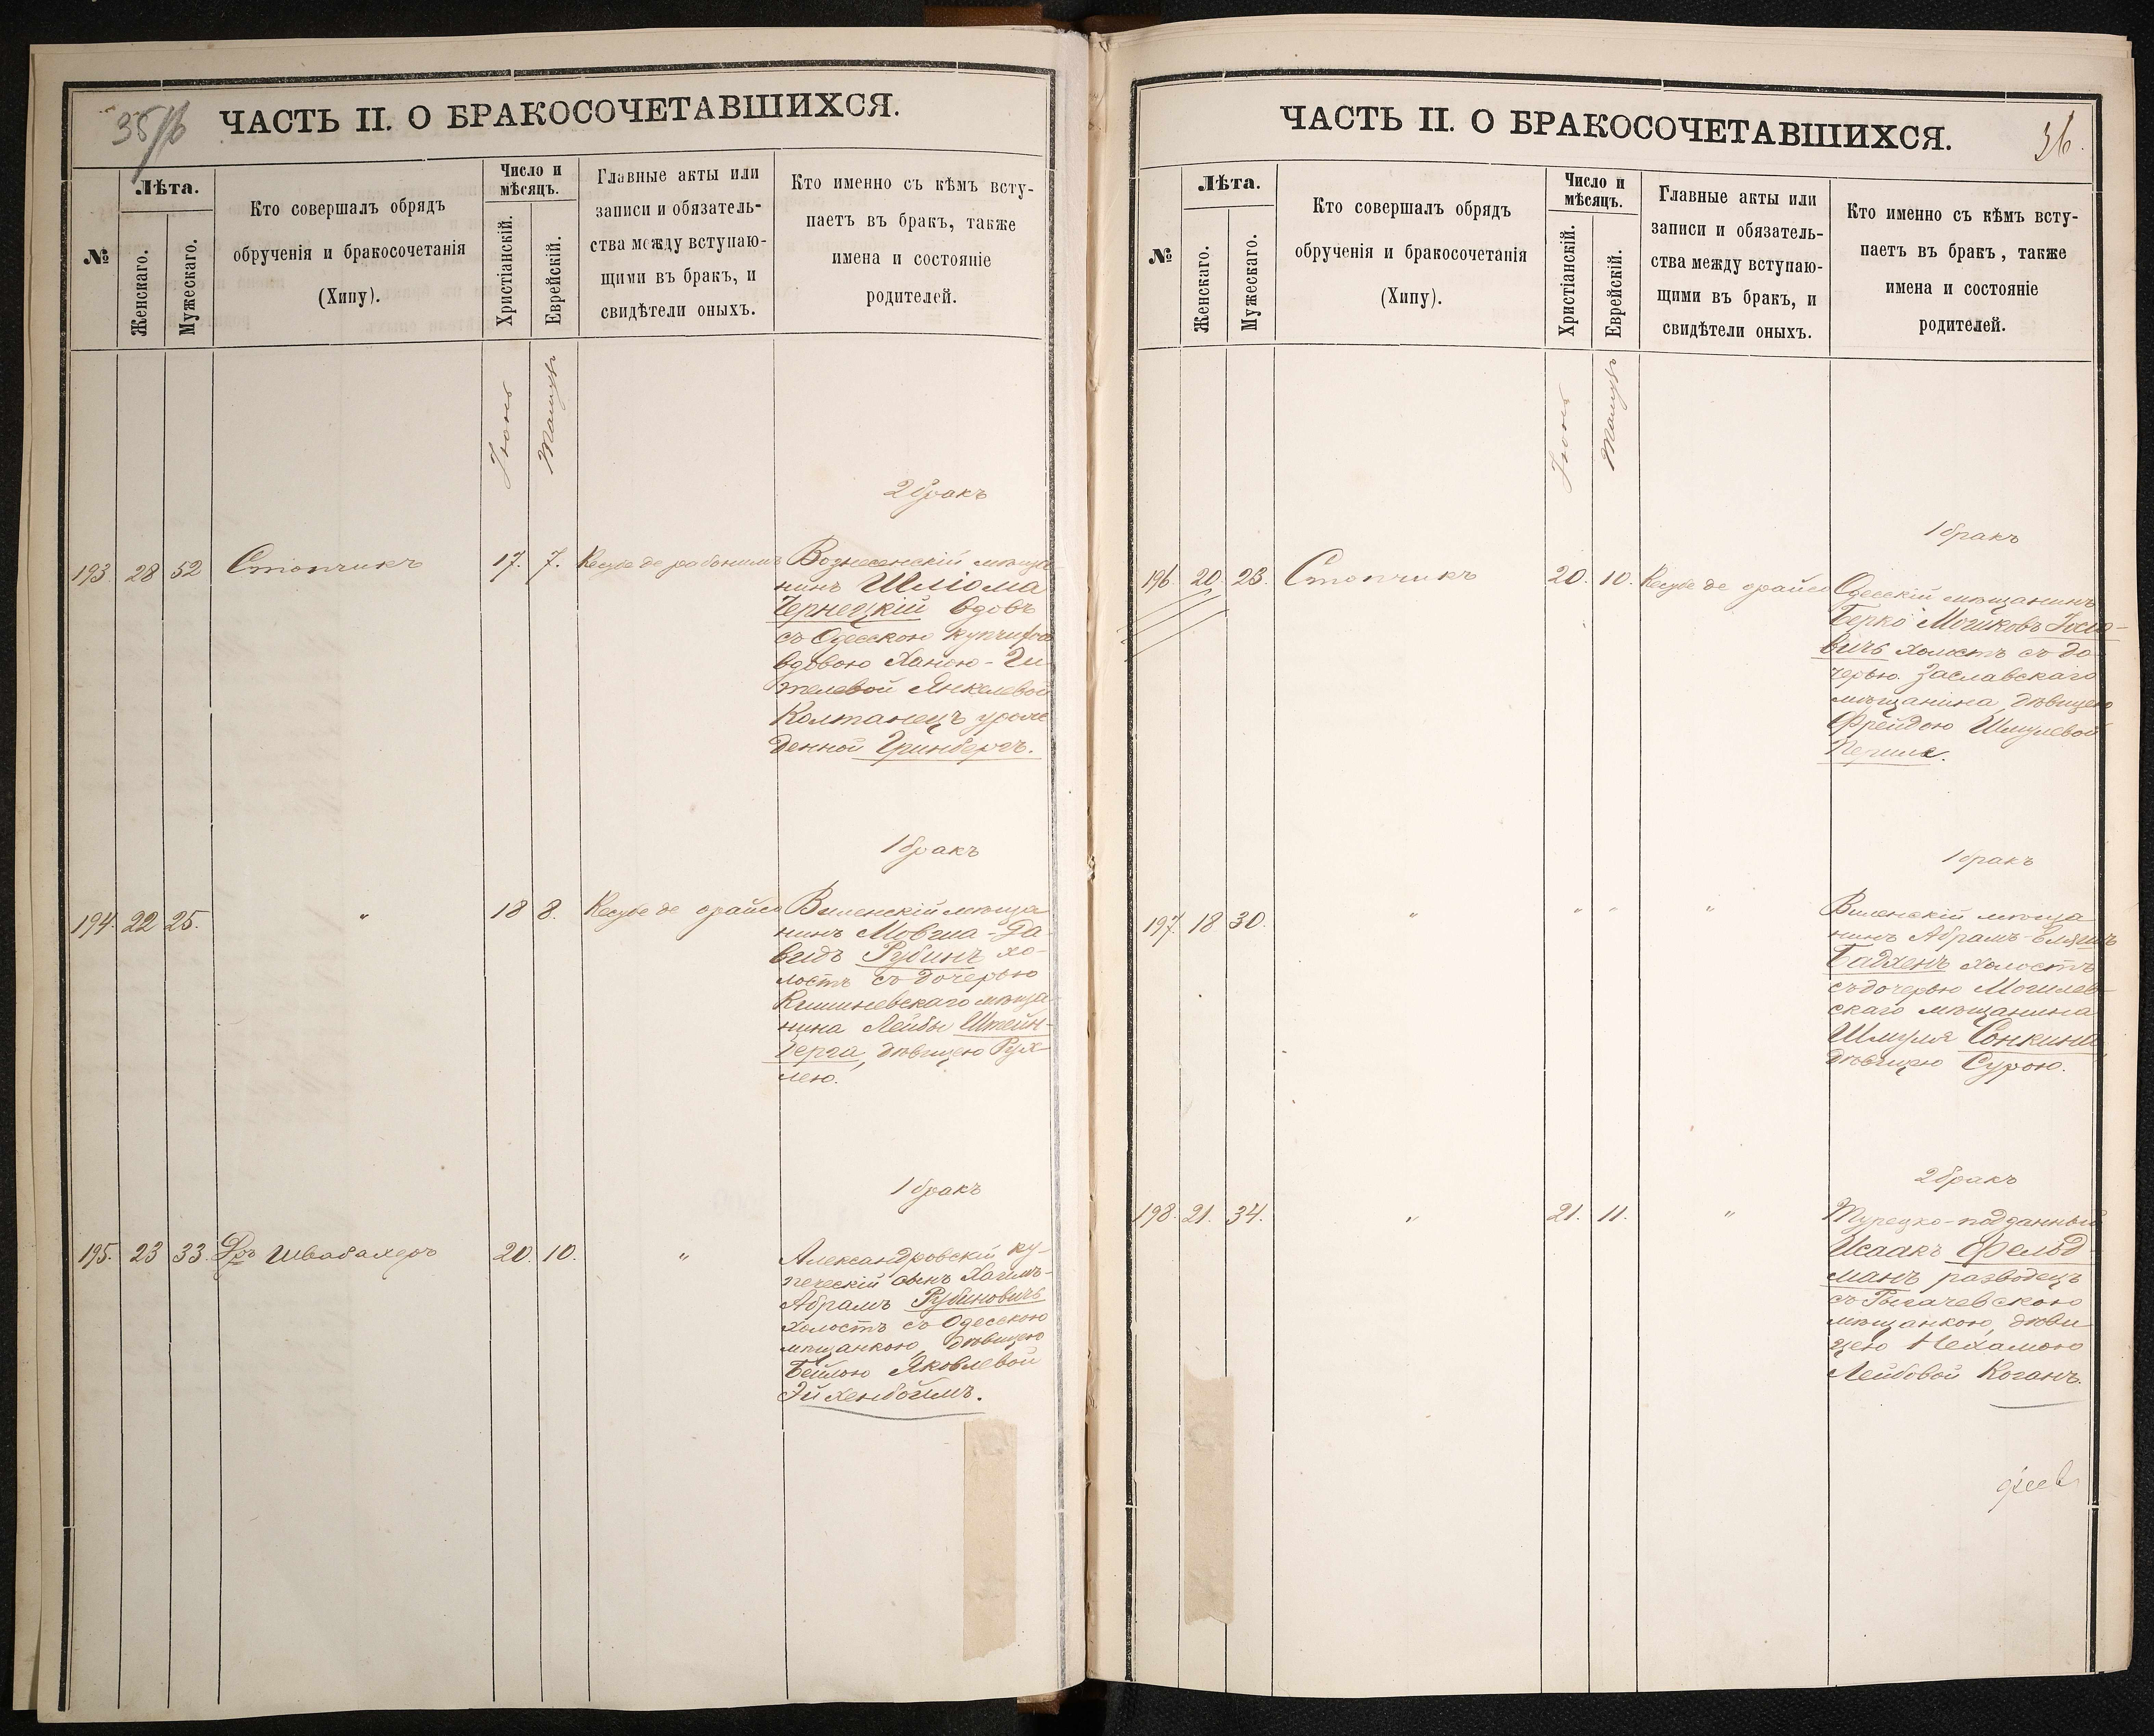 35/б
ЧАСТЬ II. О БРАКОСОЧЕТАВШИХСЯ.
№
Лѣта.
Женскаго.
Мужескаго.
Кто совершалъ обрядъ
обрученія и бракосочетанія
(Хипу).
Число и
мѣсяцъ.
Христіанскій.
Еврейскій.
Главные акты или
записи и обязатель-
ства между вступаю-
щими въ бракъ, и
свидѣтели оныхъ.
Кто именно съ кѣмъ всту-
паетъ въ бракъ, также
имена и состояніе
родителей.
Іюнь
Тамузъ
2 бракъ
193. 28 52 Стопчикъ 17. 7. Кесубе де рабонимъ
Вознесенскій мѣща
нинъ Шліома
Чернецкій вдовъ
съ Одесскою
вдовою Ханою-Ги
телевой Янкелевой
Колтанецъ урож
денной Гринбергъ.
1 бракъ
194. 22 25. " 18 8. Кесубе де орайсо
Виленскій мѣща
нинъ Мовша-Да
видъ Рубинъ хо-
лостъ съ дочерью
Кишиневскаго мѣща-
нина Лейбы Штейн-
берга, дѣвицею Рух-
лею.
1 бракъ
195. 23 33. Дръ Швабахеръ 20. 10. "
Александровскій ку-
печескій сынъ Хаимъ-
Абрамъ Рубиновичъ
холостъ съ Одесскою
мѣщанкою, дѣвицею
Бейлою Яковлевой
Эйхенбоймъ.
ЧАСТЬ II. О БРАКОСОЧЕТАВШИХСЯ.
36.
№
Лѣта.
Женскаго.
Мужескаго.
Кто совершалъ обрядъ
обрученія и бракосочетанія
(Хипу).
Число и
мѣсяцъ.
Христіанскій.
Еврейскій.
Главные акты или
записи и обязатель-
ства между вступаю-
щими въ бракъ, и
свидѣтели оныхъ.
Кто именно съ кѣмъ всту-
паетъ въ бракъ, также
имена и состояніе
родителей.
Іюнь
Тамузъ
1 бракъ
196. 20. 23. Стопчикъ 20. 10. Кесубе де орайсо
Одесскій мѣщанинъ
Берко
вичъ холостъ съ до
черью Заславскаго
мѣщанина, дѣвицею
Фрейдою Шмулевой
1 бракъ
197. 18 30. " " " "
Виленскій мѣща
нинъ Абрамъ-Эліяшъ
Бадхенъ холостъ
съ дочерью Могилев-
скаго мѣщанина
Шмуля Сонкина,
дѣвицею Сурою.
2 бракъ
198. 21. 34. " 21. 11. "
Турецко-подданный
Исаакъ Фельд-
манъ разводецъ
съ мѣщанкою, дѣви
цею Нехамою
Лейбовой Коганъ.